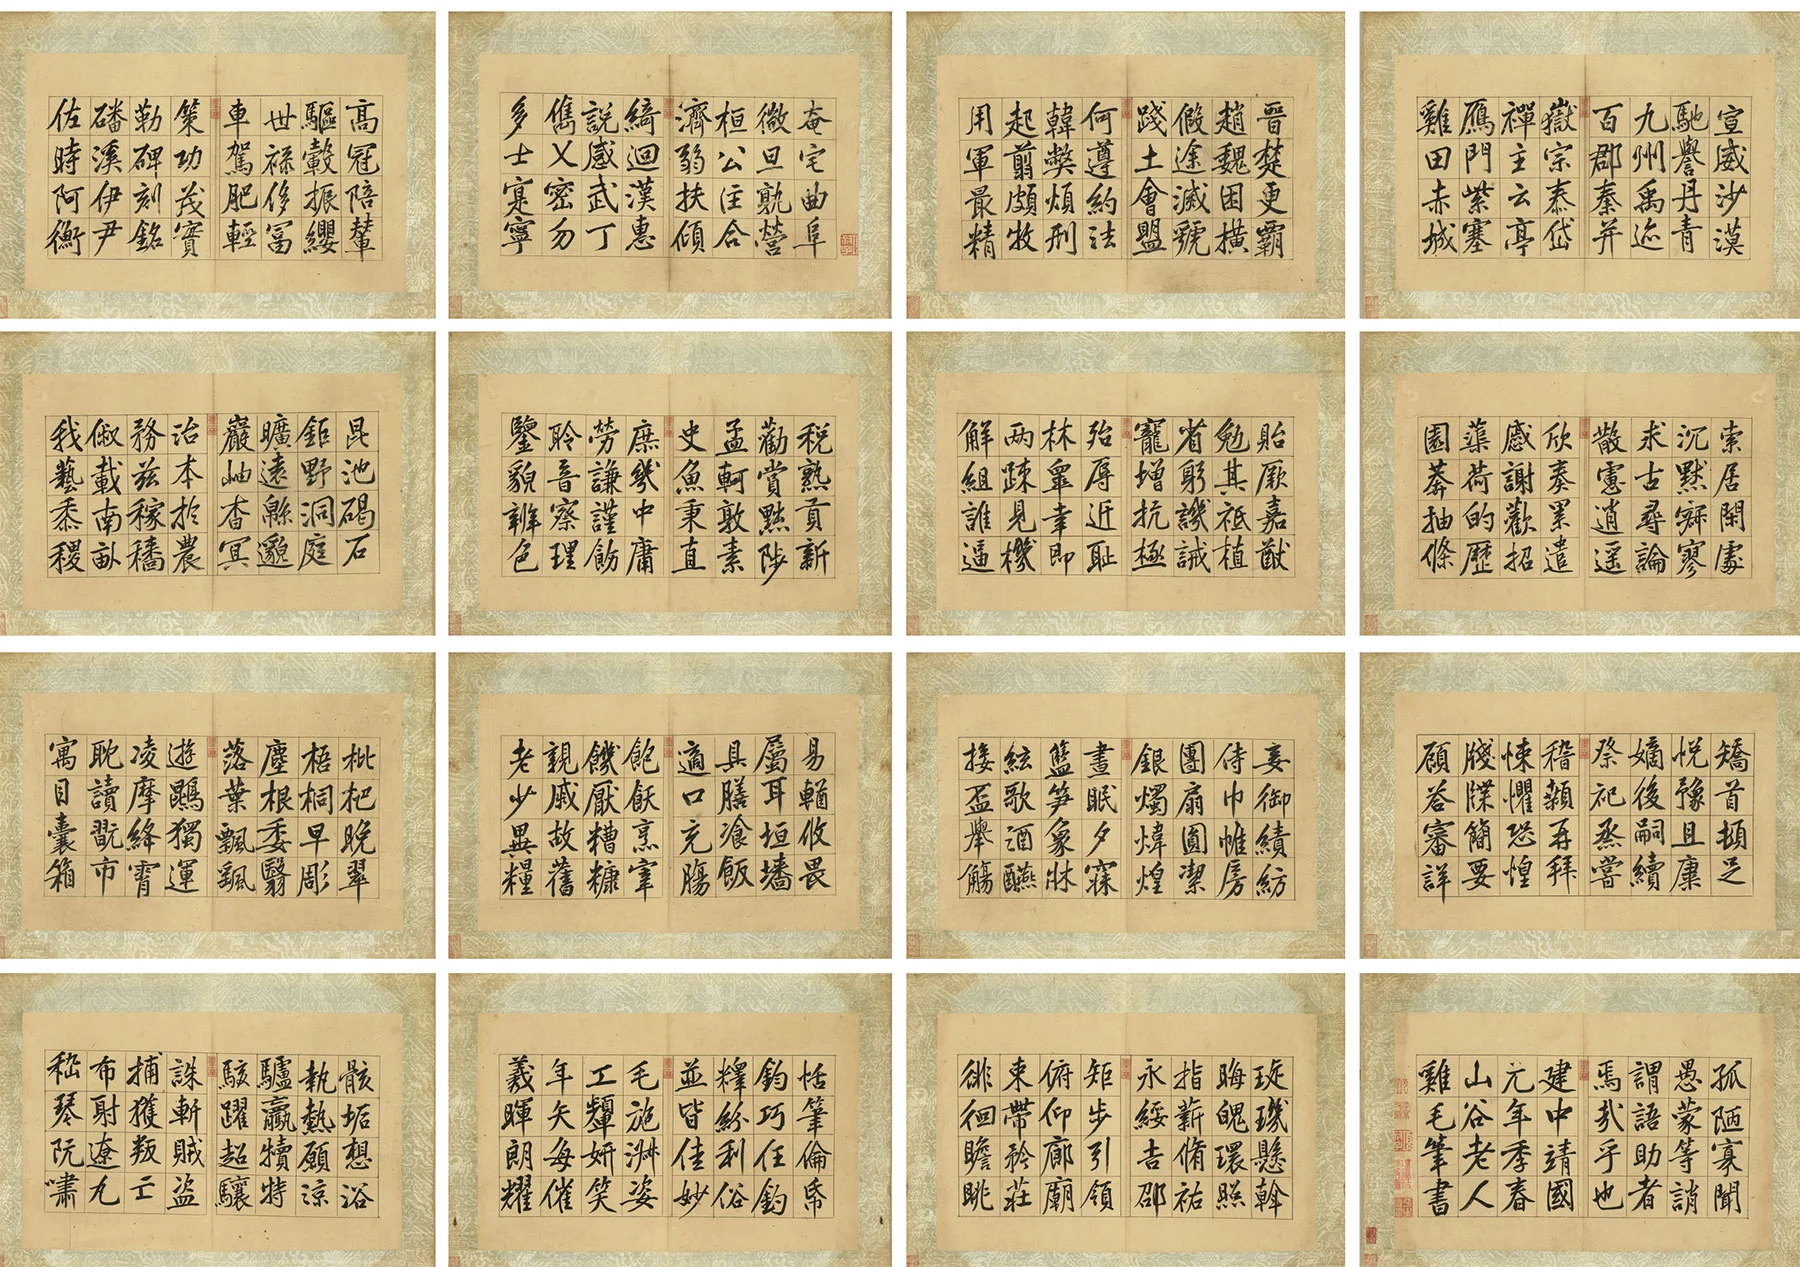 高冠陪輦
驅轂振纓
世祿侈富
車駕肥輕
策功茂實
勒碑刻銘
磻溪伊尹
佐時阿衡
奄宅曲阜
微旦孰營
桓公匡合
濟弱扶傾
綺迴漢惠
說感武丁
儁乂密勿
多士寔寧
晉楚更霸
趙魏困橫
假途滅虢
踐土會盟
何遵約法
韓弊煩刑
起翦頗牧
用軍最精
宣威沙漠
馳譽丹青
九州禹迹
百郡秦并
嶽宗泰岱
禪主云亭
鴈門紫塞
雞田赤城
昆池碣石
鉅野洞庭
曠遠緜邈
巖岫杳冥
治本於農
務茲稼穡
俶載南畝
我藝黍稷
稅熟貢新
勸賞黜陟
孟軻敦素
史魚秉直
庶幾中庸
勞謙謹飭
聆音察理
鑒貌辨色
貽厥嘉猷
勉其祗植
省躬譏誡
寵增抗極
殆辱近恥
林皐幸即
两疎見機
解組誰逼
索居閑處
沉默寂寥
求古尋論
散慮逍遥
欣奏累遣
感謝歡招
蕖荷的歷
園莽抽條
枇杷晚翠
梧桐早彫
塵根委翳
落葉飄颻
遊鵾獨運
凌摩絳霄
耽讀翫市
寓目囊箱
易輶攸畏
屬耳垣墻
具膳飡飯
適口充腸
飽飫烹宰
饑厭糟糠
親戚故舊
老少異糧
妾御績紡
侍巾帷房
團扇圓潔
銀燭煒煌
晝眠夕寐
籃笋象牀
絃歌酒讌
接盃舉觴
矯首頓足
悅豫且康
嫡後嗣續
祭祀烝嘗
稽顙再拜
悚懼恐惶
牋牒簡要
顧答審詳
骸垢想浴
執熱願涼
驢騾犢特
駭躍超驤
誅斬賊盜
捕獲叛亡
布射遼丸
嵇琴阮嘯
恬筆倫帋
鈞巧任釣
釋紛利俗
並皆佳妙
毛施淑姿
工顰妍笑
年矢每催
羲暉朗耀
琁璣懸斡
晦魄環照
指薪脩祐
永綏吉邵
矩步引領
俯仰廊廟
束帶矜莊
徘徊瞻眺
孤陋寡聞
愚蒙等誚
謂語助者
焉哉乎也
建中靖國
元年季春
山谷老人
雞毛筆書